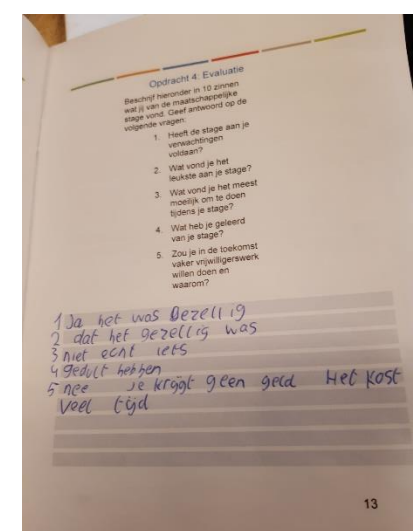 Opdracht 4: Evaluatie
Beschrijf hieronder in 10 zinnen
wat jij van de maatschappelijke
stage vond. Geef antwoord op de
volgende vragen:
1. Heeft de stage aan je
verwachtingen
voldaan?
2. Wat vond je het
leukste aan je stage?
3. Wat vond je het meest
moeilijk om te doen
tijdens je stage?
4. Wat heb je geleerd
van je stage?
5. Zou je in de toekomst
vaker vrijwilligerswerk
willen doen en
waarom?
1 Ja het was Gezellig
2 dat het gezellig was
3 niet echt iets
4 gedult hebben
5 nee je krijgt geen geld Het kost
veel tijd
13